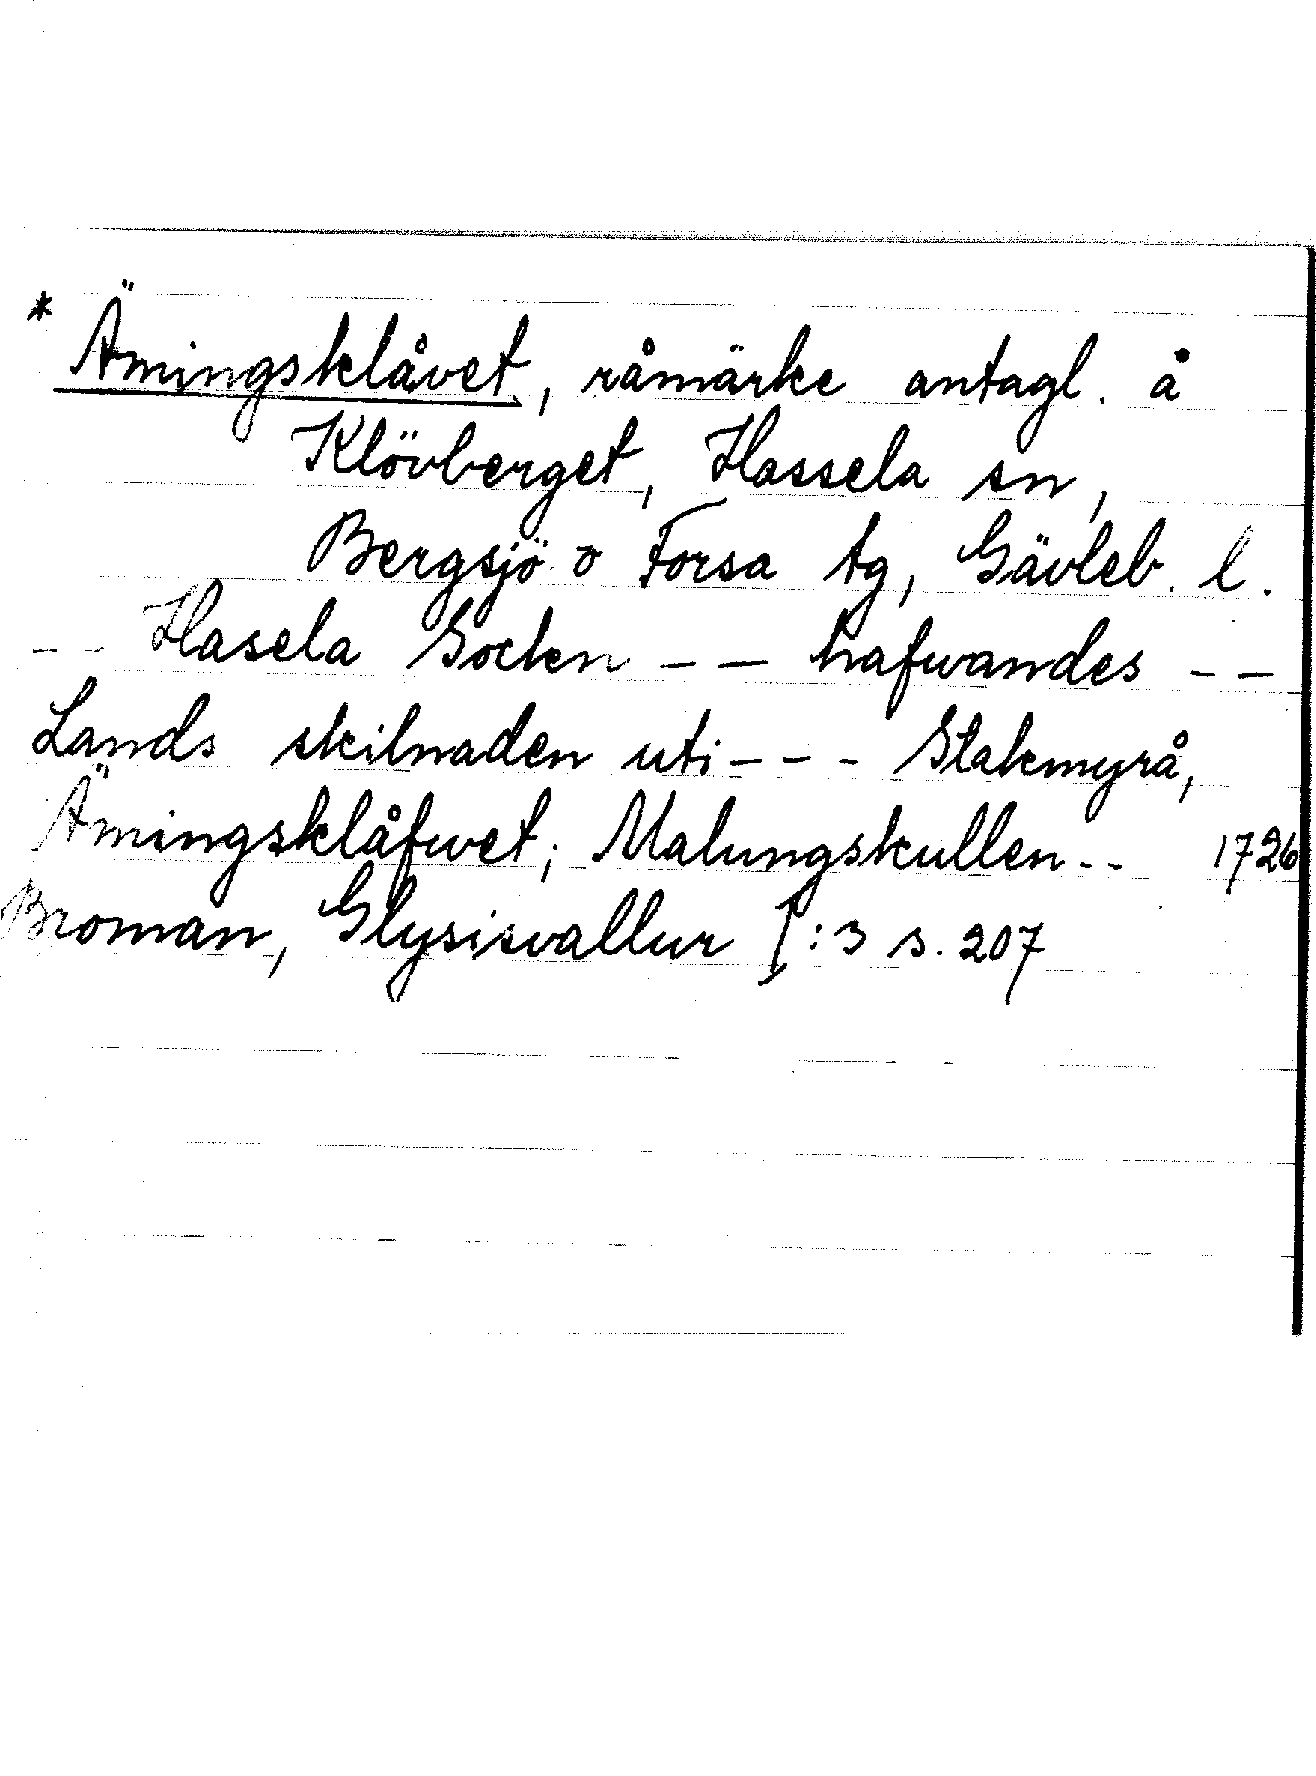 * Ämingsklåvet, råmärke antagl. å
Klövberget, Hassela sn,
Bergsjö o Forsa tg, Gävleb. l.
-- Hasela Socken -- hafwandes --
Lands skilnaden uti --- Stakmyrå,
Ämingsklåfwet; Malungskullen -- 1726
Broman, Glysisvallur I:3 s. 207